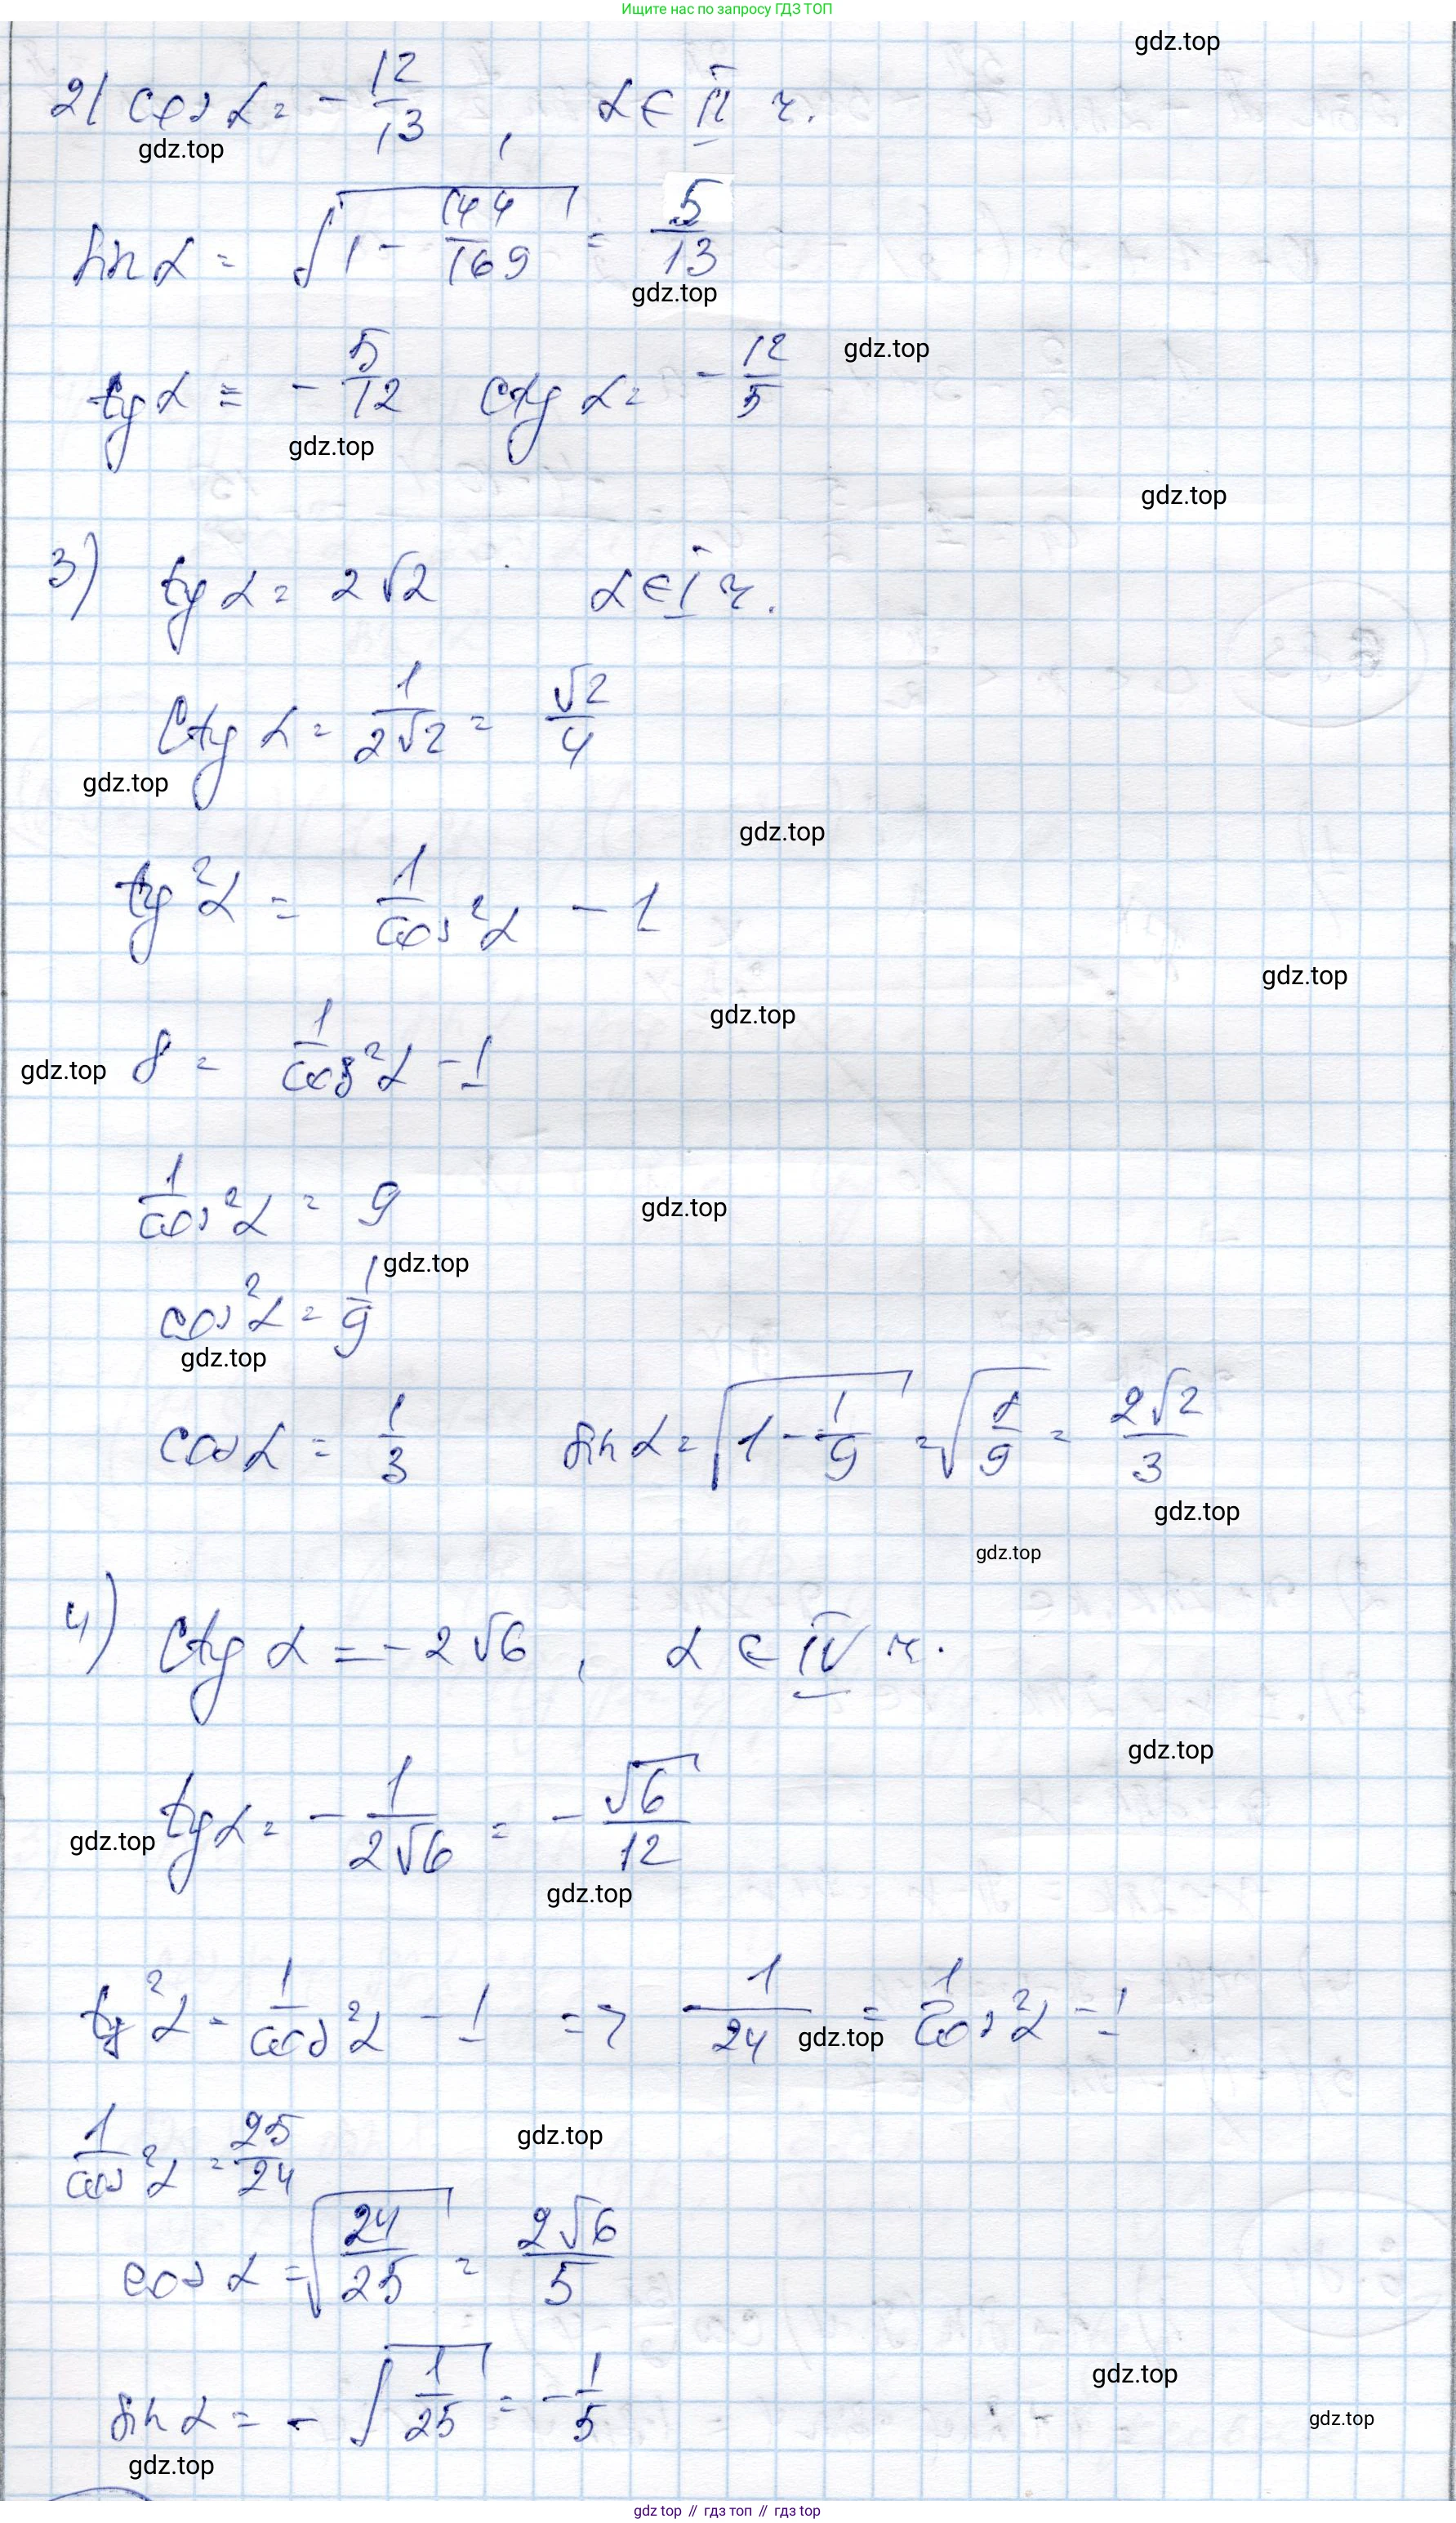 Ищите нас по запросу ГДЗ ТОП
gdz.top
2) cos α = - 12/13 , α ∈ II ч.
gdz.top
sin α = √(1 - 144/169) = 5/13
gdz.top
gdz.top
tg α = - 5/12 ctg α = - 12/5
gdz.top
gdz.top
3) tg α = 2√2 α ∈ I ч.
ctg α = 1/(2√2) = √2/4
gdz.top
gdz.top
tg²α = 1/cos²α - 1
gdz.top
gdz.top
gdz.top 8 = 1/cos²α - 1
1/cos²α = 9
gdz.top
gdz.top
cos²α = 1/9
gdz.top
cos α = 1/3 sin α = √(1 - 1/9) = √(8/9) = 2√2/3
gdz.top
gdz.top
4) ctg α = - 2√6 , α ∈ IV ч.
gdz.top
gdz.top tg α = - 1/(2√6) = - √6/12
gdz.top
tg²α = 1/cos²α - 1 => 1/24 = 1/cos²α - 1
gdz.top
1/cos²α = 25/24
gdz.top
cos α = √(24/25) = 2√6/5
gdz.top
sin α = - √(1/25) = - 1/5
gdz.top
gdz.top
gdz top // гдз топ // гдз top